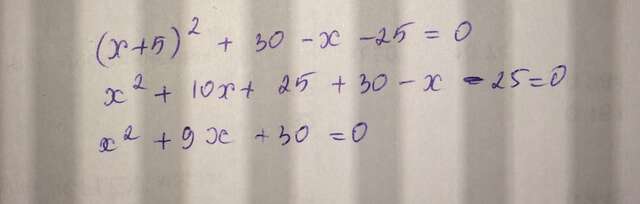 (x+5)² + 30 - x - 25 = 0
x² + 10x + 25 + 30 - x - 25 = 0
x² + 9x + 30 = 0